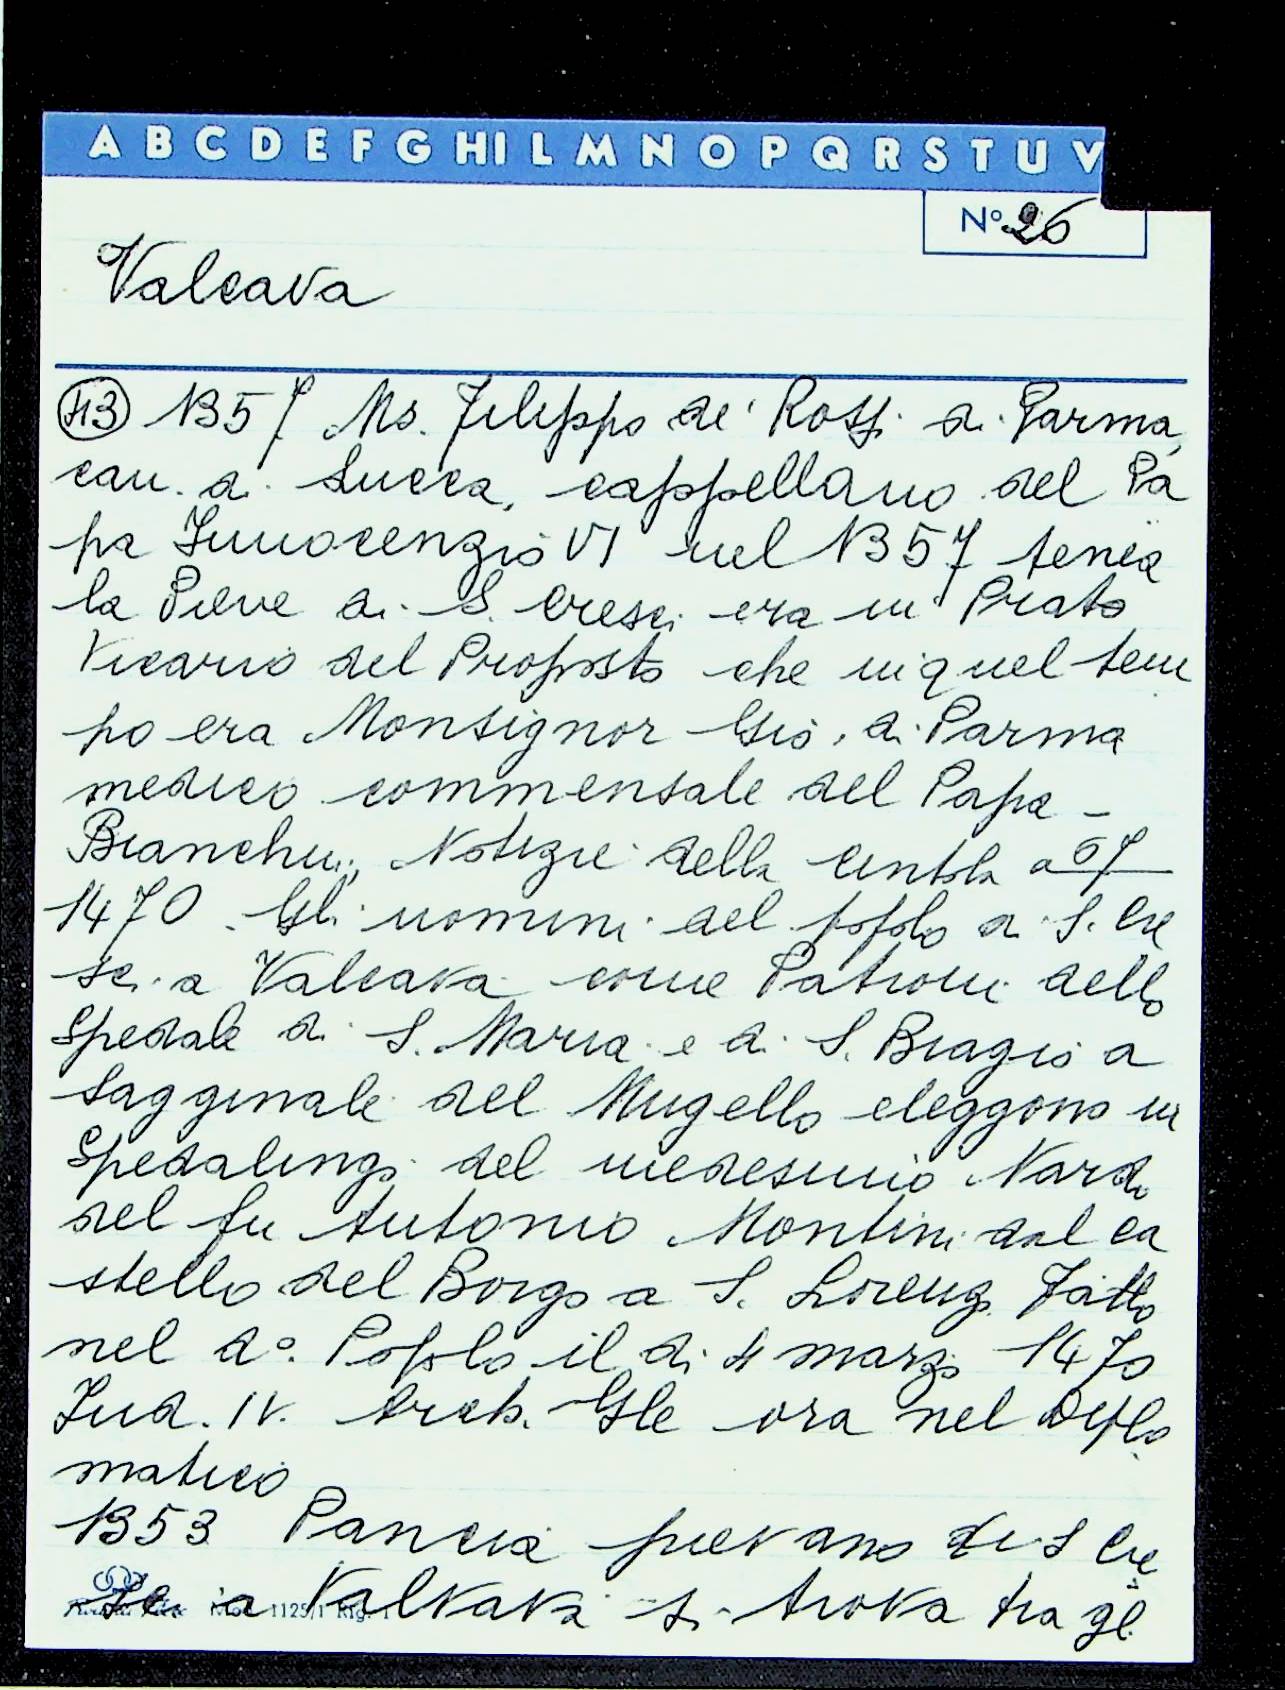 A B C D E F G H I L M N O P Q R S T U V
N° 26
Valcava
(43) 1357 Ms. Filippo de' Rossi di Parma,
can. di Lucca, cappellano del Pa
pa Innocenzio VI nel 1357 tenea
la Pieve di S. Cresci era in Prato
Vicario del Proposto che in quel tem
po era Monsignor Gio. di Parma
medico commensale del Papa -
Bianchini, Notizie della Cintola a 67
1470. Gli uomini del popolo di S. Cre
sci a Valcava come Patroni dello
Spedale di S. Maria e di S. Biagio a
Sagginale del Mugello eleggono in
Spedalingo del medesimo Nardo
del fu Antonio Montini dal ca
stello del Borgo a S. Lorenzo. Fatto
nel do. Popolo il di 4 marzo 1470
Ind. IV. Arch. Gle ora nel Diplo
matico
1353 Pancia pievano di S Cre
sci a Valvava si trova tra gli
1125/1 Rig.